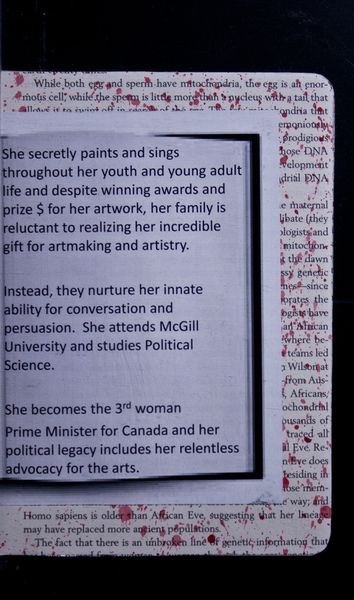 While both egg and sperm have mitochondria, the egg is an enor-
mous cell, while the sperm is little more than a nucleus with a tail that
allows it to swim off in
ondria that
emoniously
prodigious
hose DNA
velopment
drial DNA
She secretly paints and sings
throughout her youth and young adult
life and despite winning awards and
prize $ for her artwork, her family is
reluctant to realizing her incredible
gift for artmaking and artistry.
Instead, they nurture her innate
ability for conversation and
persuasion. She attends McGill
University and studies Political
Science.
She becomes the 3rd woman
Prime Minister for Canada and her
political legacy includes her relentless
advocacy for the arts.
e maternal
libate (they
ologists and
mitochon-
s the dawn
ssy genetic
mes—since
orates the
ogists have
an African
where be-
teams led
Wilson at
from Aus-
Africans,
ochondrial
ousands of
traced all
al Eve. Re-
n Eve does
residing in
ose mem-
e way, and
Homo sapiens is older than African Eve, suggesting that her lineage
may have replaced more ancient populations.
The fact that there is an unbroken line of genetic information that